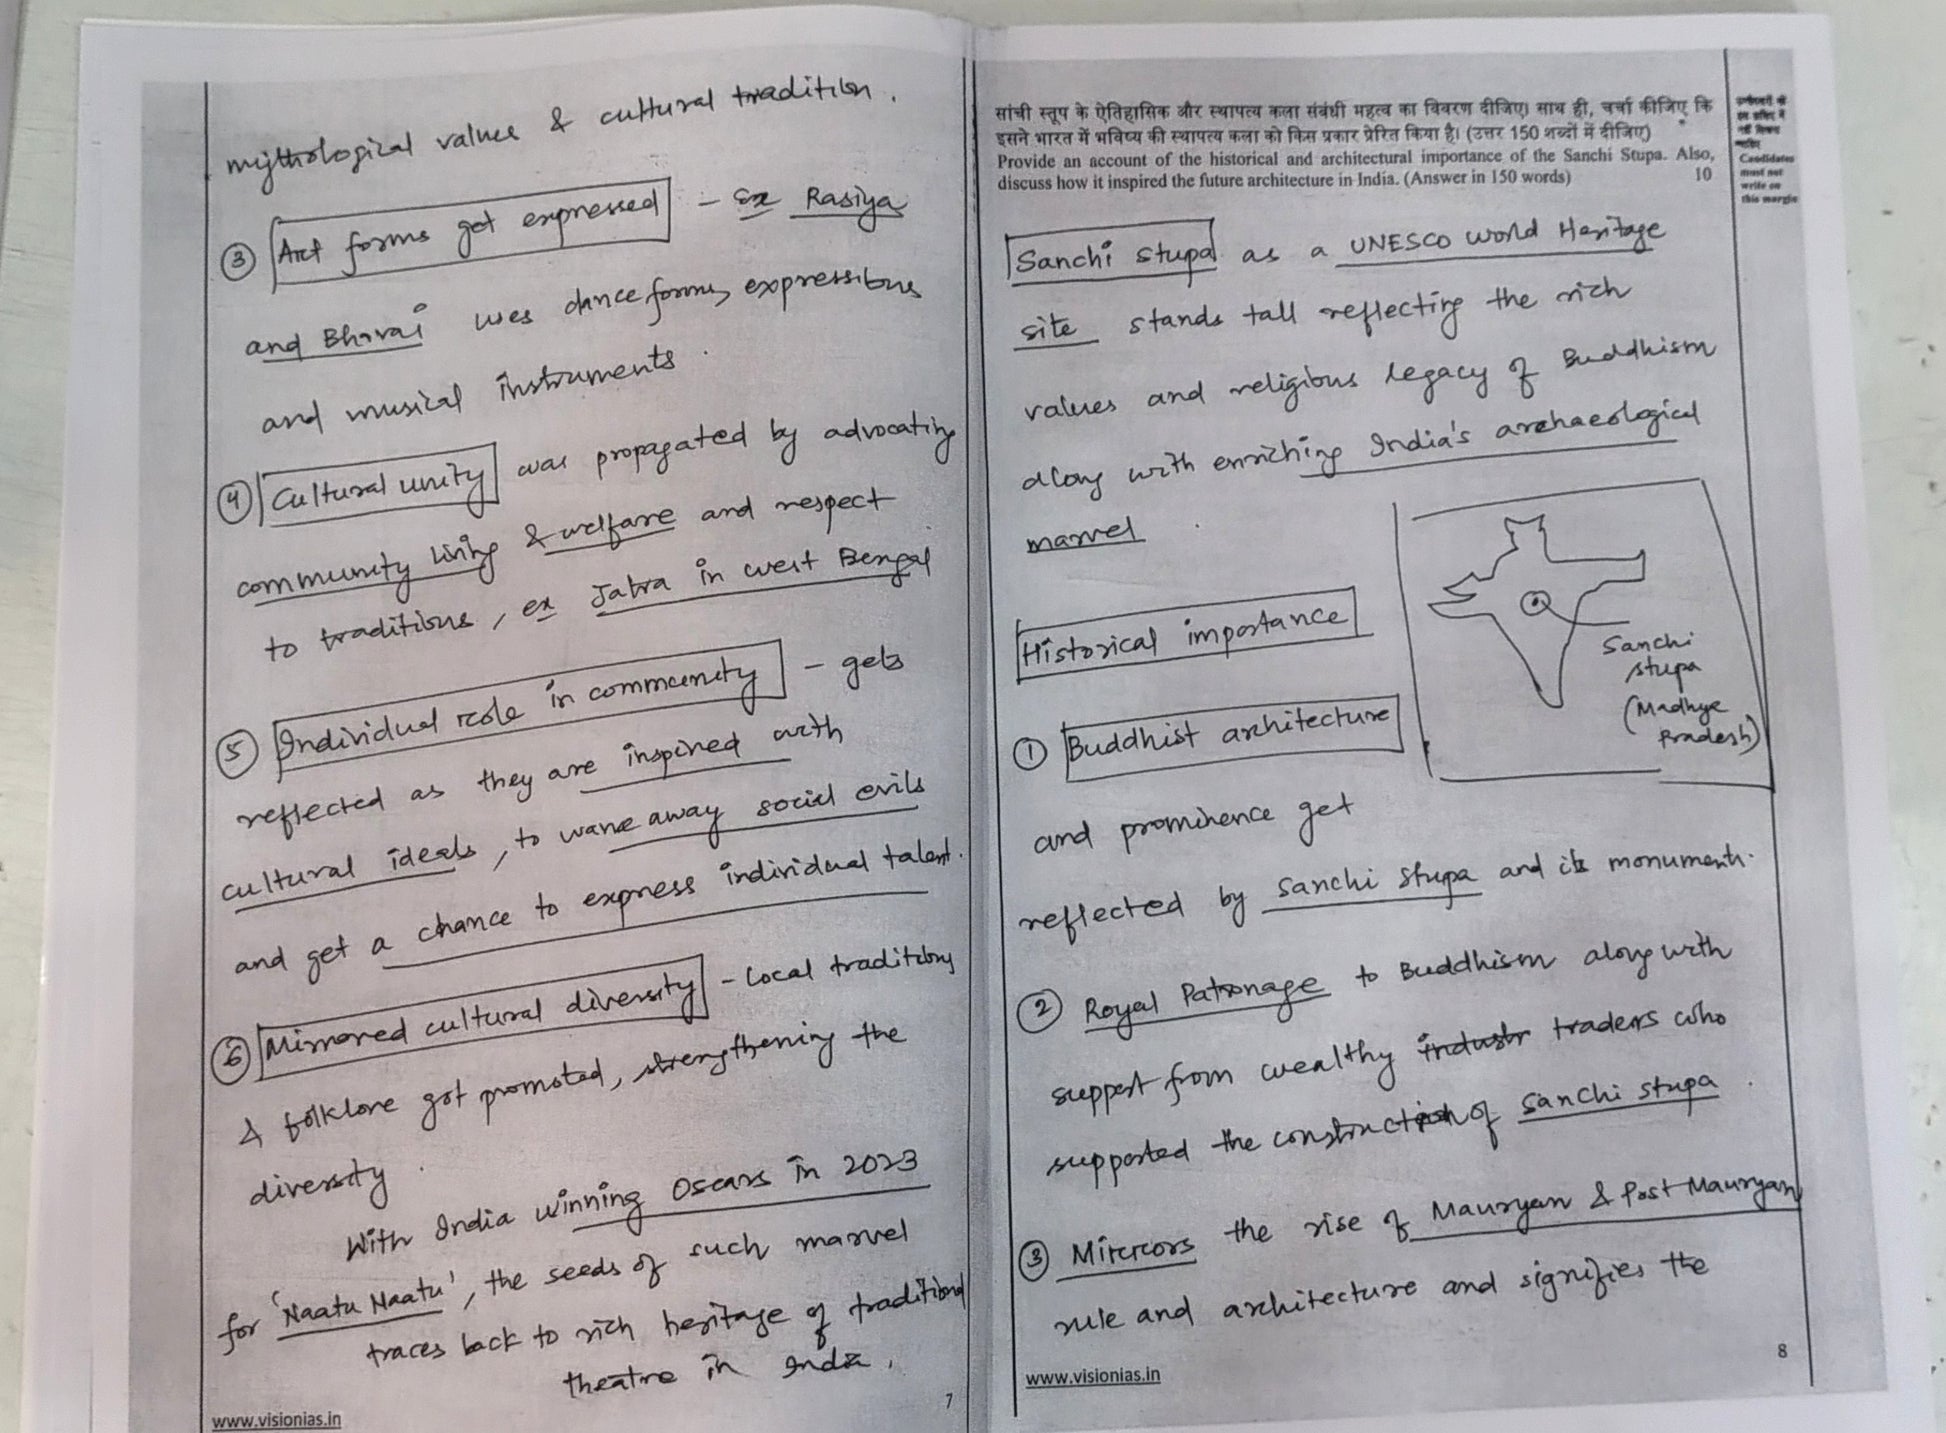 mythological values & cultural tradition.
③ Art forms get expressed - ex Rasiya
and Bhavai uses dance forms, expressions
and musical instruments.
④ Cultural unity was propagated by advocating
community living & welfare and respect
to traditions, ex Jatra in west Bengal
⑤ Individual role in community - gets
reflected as they are inspired with
cultural ideals, to wane away social evils
and get a chance to express individual talent.
⑥ Mirrored cultural diversity - Local traditions
& folklore got promoted, strengthening the
diversity.
With India winning Oscars in 2023
for 'Naatu Naatu', the seeds of such marvel
traces back to rich heritage of traditional
theatre in India.
www.visionias.in
7
सांची स्तूप के ऐतिहासिक और स्थापत्य कला संबंधी महत्व का विवरण दीजिए। साथ ही, चर्चा कीजिए कि
इसने भारत में भविष्य की स्थापत्य कला को किस प्रकार प्रेरित किया है। (उत्तर 150 शब्दों में दीजिए)
Provide an account of the historical and architectural importance of the Sanchi Stupa. Also,
discuss how it inspired the future architecture in India. (Answer in 150 words) 10
Candidates
must not
write on
this margin
Sanchi Stupa as a UNESCO world Heritage
site stands tall reflecting the rich
values and religious legacy of Buddhism
along with enriching India's archaeological
marvel.
Sanchi
stupa
(Madhya
Pradesh)
Historical importance
① Buddhist architecture
and prominence get
reflected by Sanchi Stupa and its monuments.
② Royal Patronage to Buddhism along with
support from wealthy industr traders who
supported the construction of Sanchi stupa.
③ Mirrors the rise of Mauryan & Post Mauryan
rule and architecture and signifies the
www.visionias.in
8